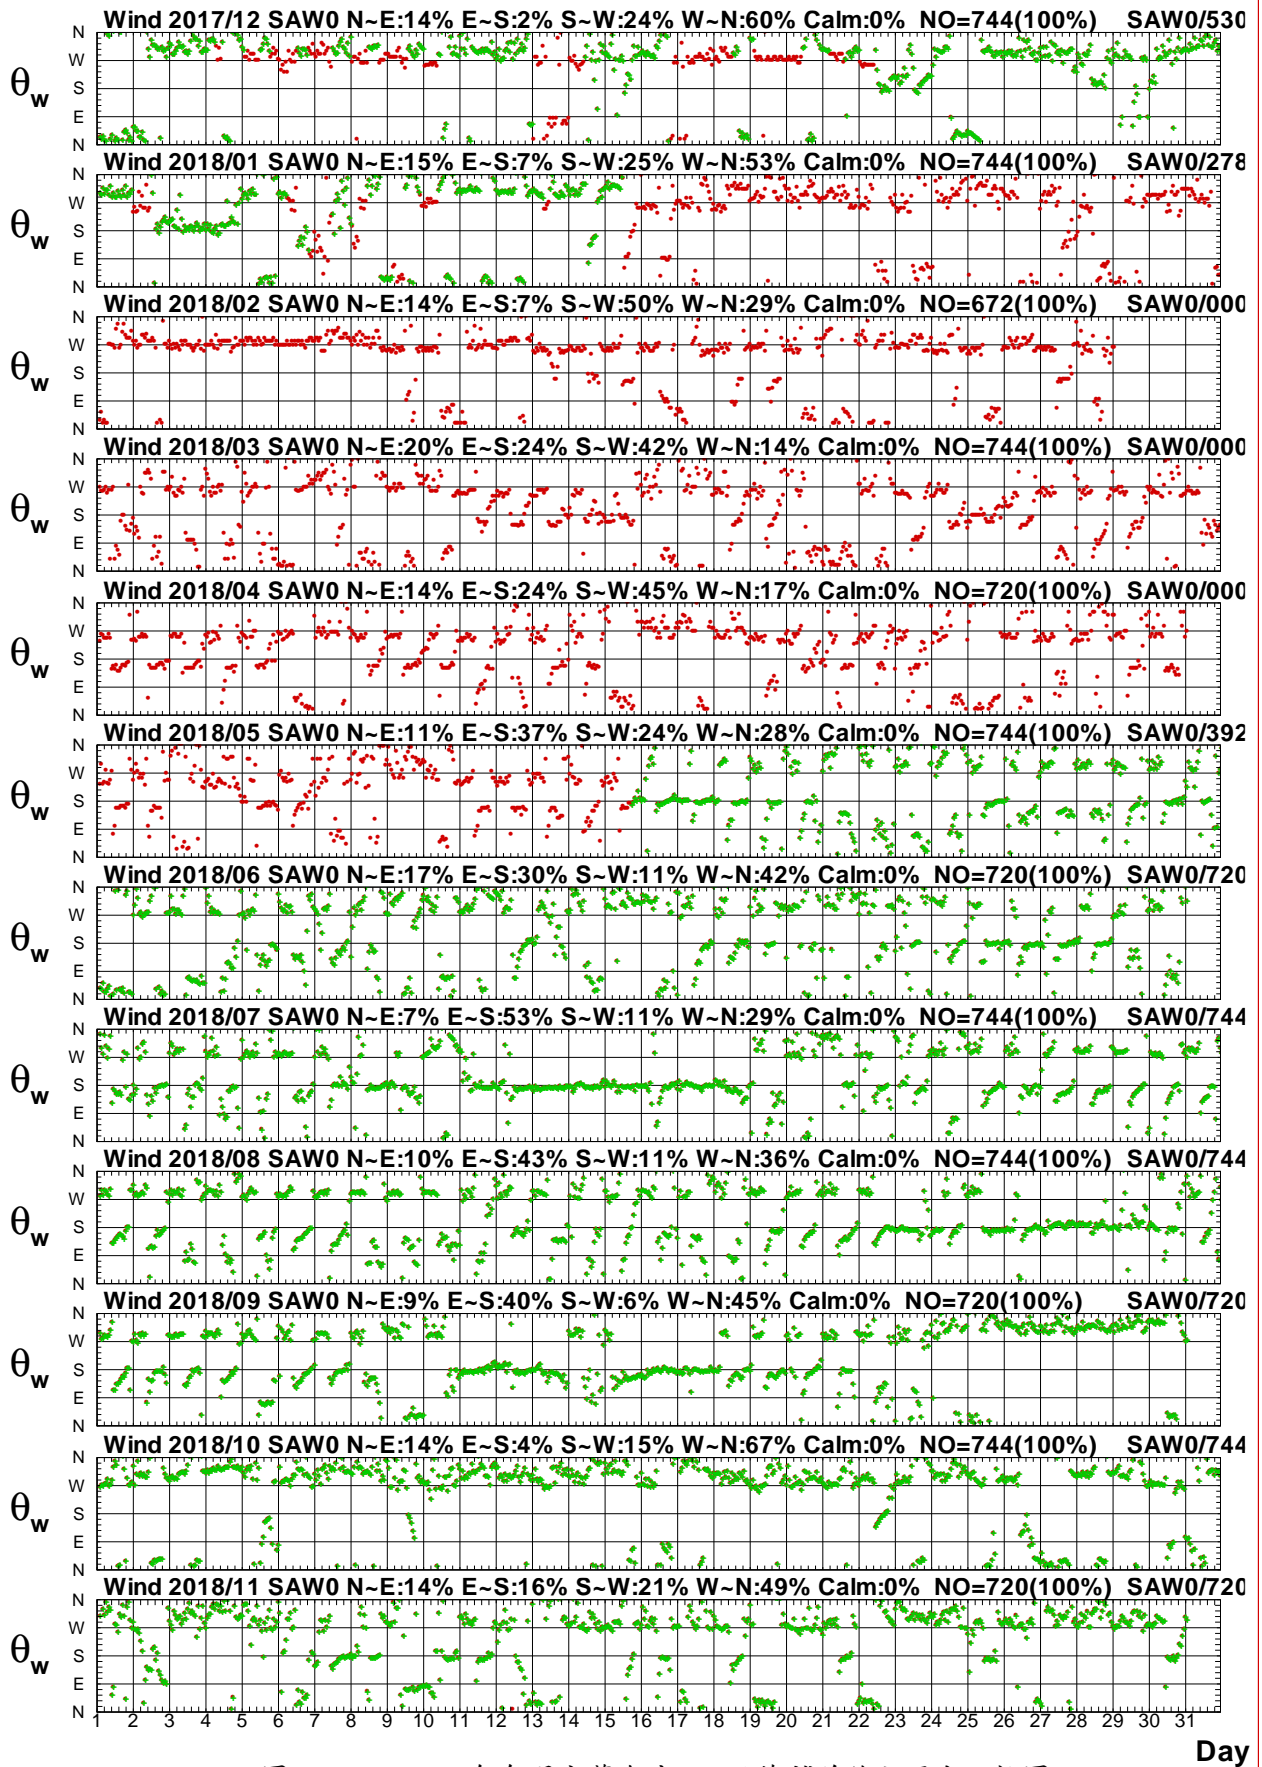 Wind 2017/12 SAW0 N~E:14% E~S:2% S~W:24% W~N:60% Calm:0% NO=744(100%) SAW0/530
N
W
θw
S
E
N
Wind 2018/01 SAW0 N~E:15% E~S:7% S~W:25% W~N:53% Calm:0% NO=744(100%) SAW0/278
N
W
θw
S
E
N
Wind 2018/02 SAW0 N~E:14% E~S:7% S~W:50% W~N:29% Calm:0% NO=672(100%) SAW0/000
N
W
θw
S
E
N
Wind 2018/03 SAW0 N~E:20% E~S:24% S~W:42% W~N:14% Calm:0% NO=744(100%) SAW0/000
N
W
θw
S
E
N
Wind 2018/04 SAW0 N~E:14% E~S:24% S~W:45% W~N:17% Calm:0% NO=720(100%) SAW0/000
N
W
θw
S
E
N
Wind 2018/05 SAW0 N~E:11% E~S:37% S~W:24% W~N:28% Calm:0% NO=744(100%) SAW0/392
N
W
θw
S
E
N
Wind 2018/06 SAW0 N~E:17% E~S:30% S~W:11% W~N:42% Calm:0% NO=720(100%) SAW0/720
N
W
θw
S
E
N
Wind 2018/07 SAW0 N~E:7% E~S:53% S~W:11% W~N:29% Calm:0% NO=744(100%) SAW0/744
N
W
θw
S
E
N
Wind 2018/08 SAW0 N~E:10% E~S:43% S~W:11% W~N:36% Calm:0% NO=744(100%) SAW0/744
N
W
θw
S
E
N
Wind 2018/09 SAW0 N~E:9% E~S:40% S~W:6% W~N:45% Calm:0% NO=720(100%) SAW0/720
N
W
θw
S
E
N
Wind 2018/10 SAW0 N~E:14% E~S:4% S~W:15% W~N:67% Calm:0% NO=744(100%) SAW0/744
N
W
θw
S
E
N
Wind 2018/11 SAW0 N~E:14% E~S:16% S~W:21% W~N:49% Calm:0% NO=720(100%) SAW0/720
N
W
θw
S
E
N
1 2 3 4 5 6 7 8 9 10 11 12 13 14 15 16 17 18 19 20 21 22 23 24 25 26 27 28 29 30 31
Day